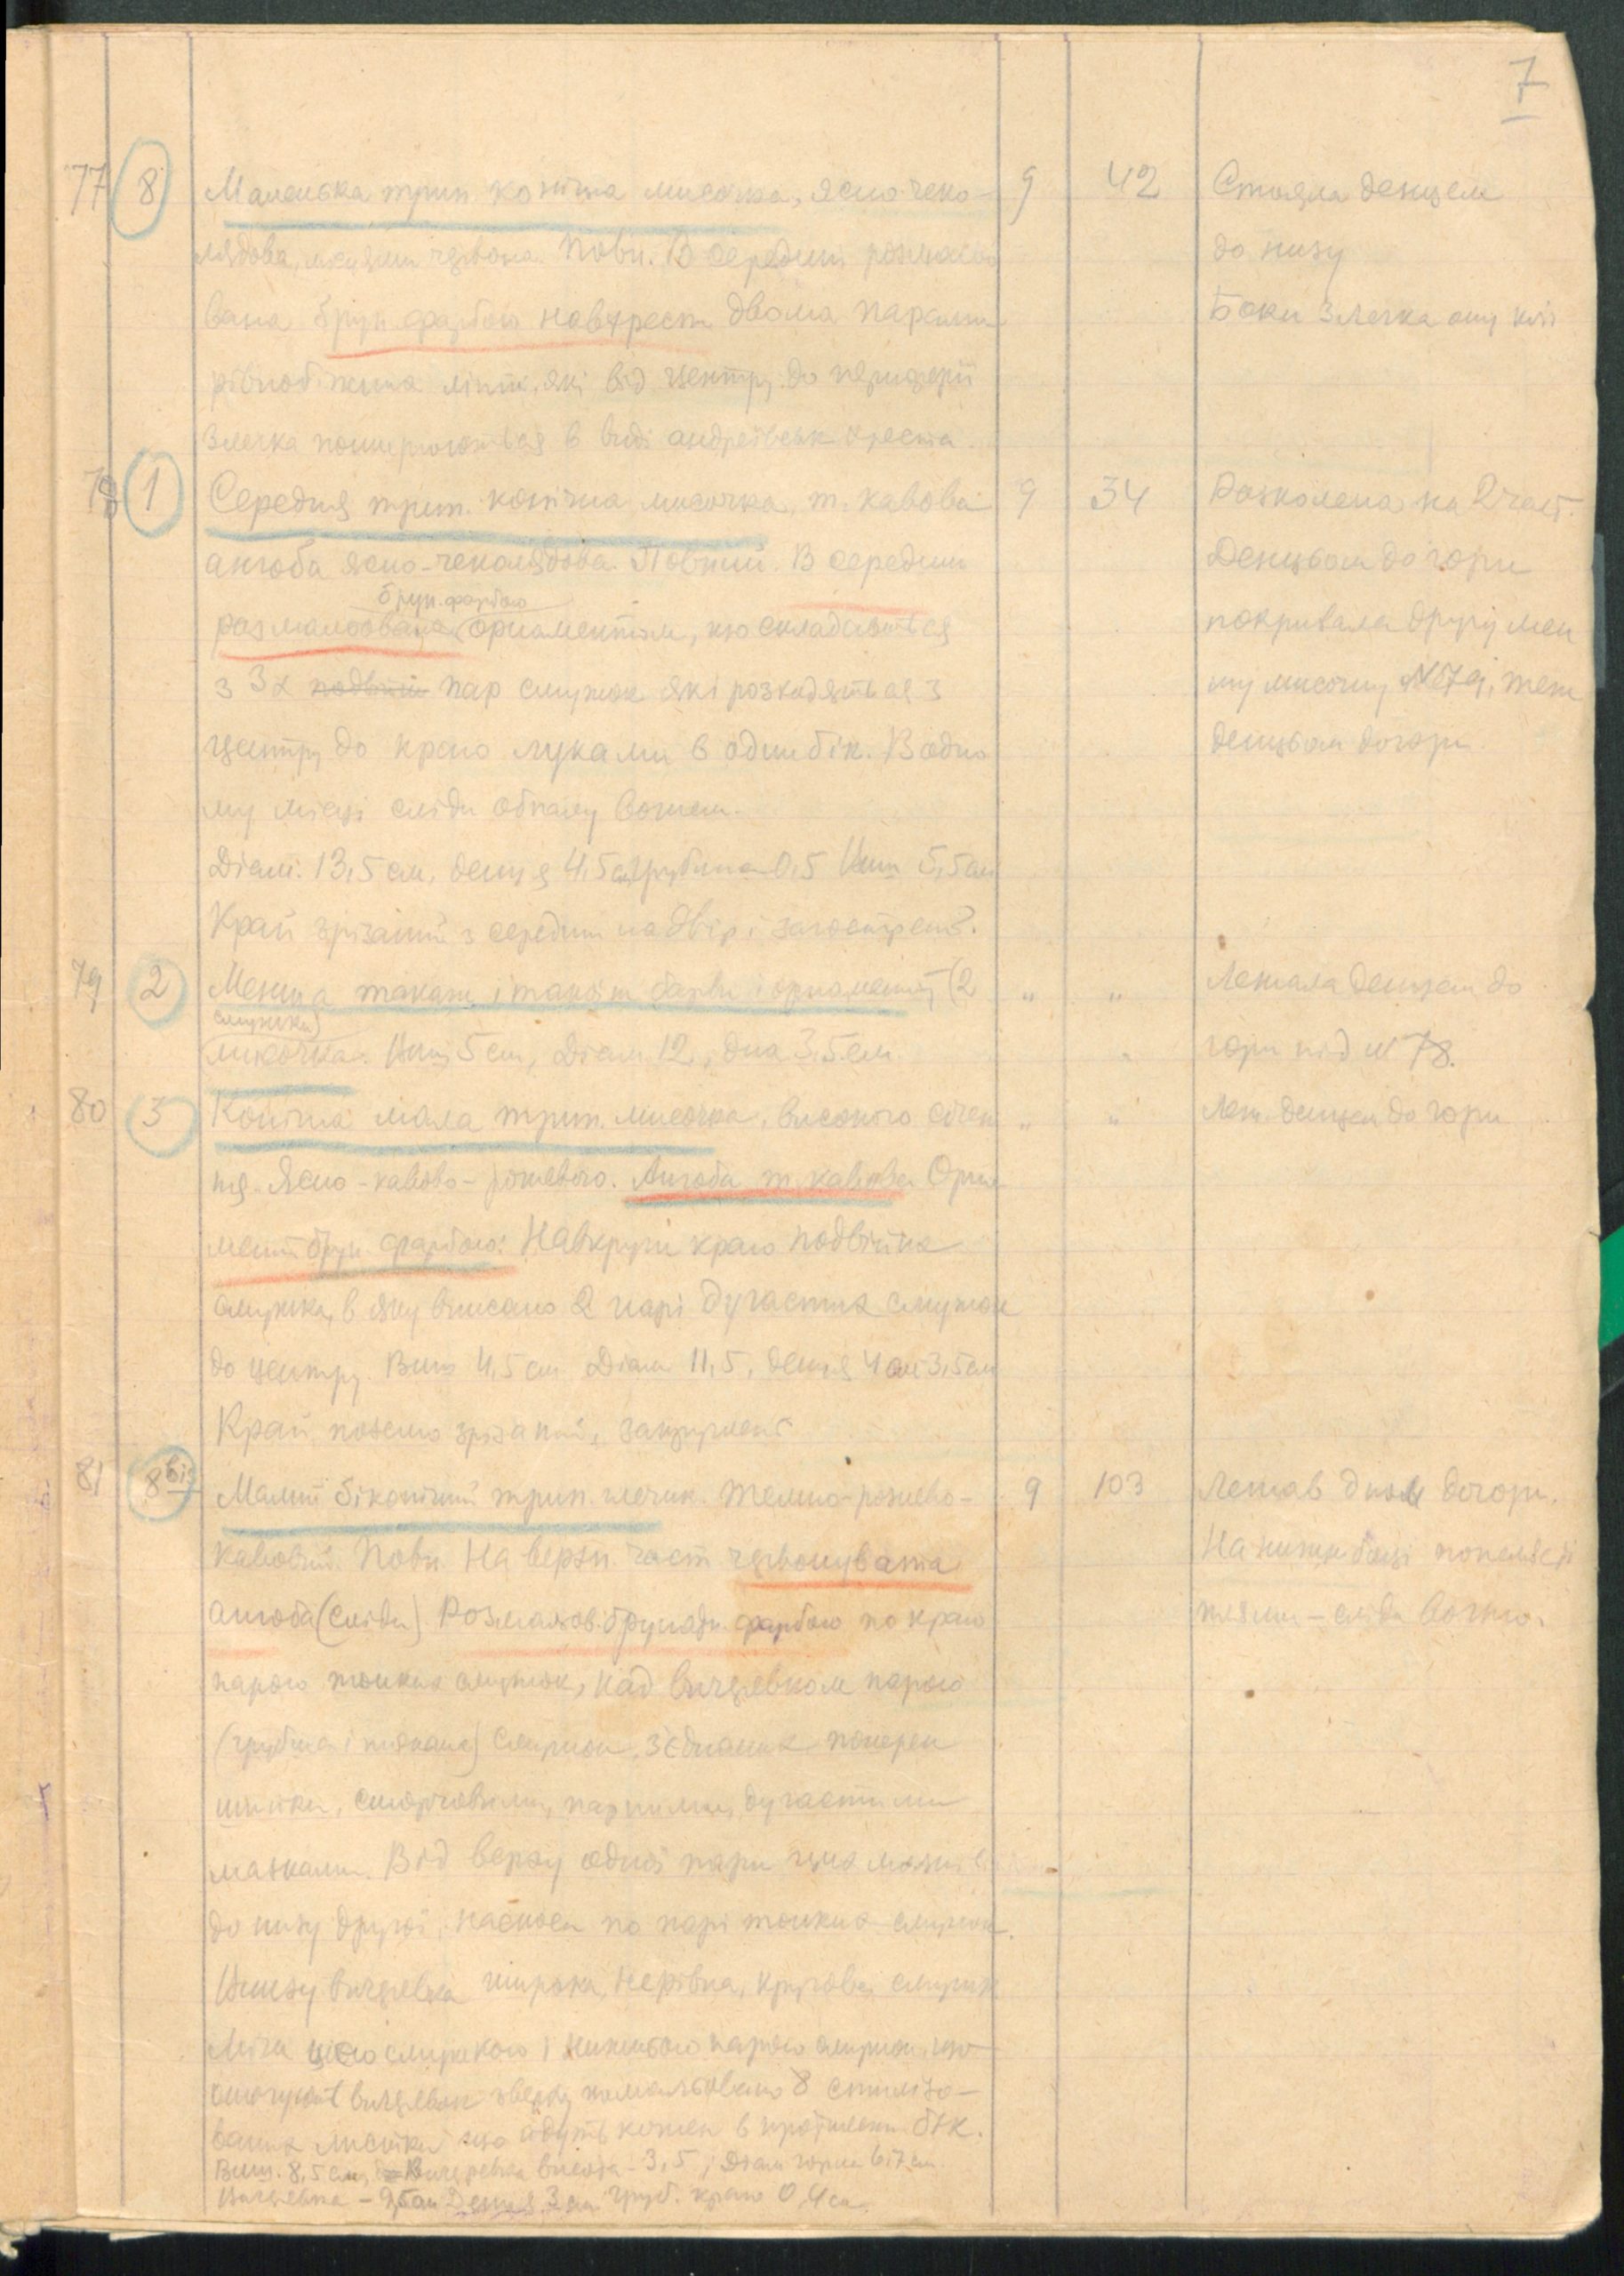 7
77 8 Маленька трип. конічна мисочка, ясно-чеко- 9 42 Стояла денцем
лядова, місцями червона. Повн. В середині розмальо до низу
вана брун. фарбою навхрест двома парами Боки
рівнобіжних ліній, які від центру до периферії
поширюються в виді андреївськ хреста.
78 1 Середня трип. конічна мисочка, т. кавова 9 34 Розколена на 2 част.
ангоба ясно-чеколядова. Повний. В середині Денцьом до гори
брун. фарбою
розмальована орнаментом, що складається покривала другу мен
з 3х подвійн пар смужок які розходяться з шу мисочку №79, теж
центру до краю луками в один бік. В одно денцьом догори.
му місці сліди обпалу вогнем.
Діам. 13,5 см, денця 4,5 см грубина 0,5 Виш 5,5 см
Край зрізаний з середини надвір і загострений.
79 2 Менша такаж і такоїж барви і орнаменту (2 " " Лежала денцем до
смужки)
мисочка. Виш 5 см, Діам 12, дна 3,5 см. " гори під № 78.
80 3 Конічна мала трип. мисочка, високого січен " " Леж. денцем до гори
ня. Ясно-кавово-рожевого. Ангоба т. кавова Орна
мент брун. фарбою: Навкруги краю подвійна
смужка, в яку вписано 2 пари дугастих смужок
до центру. Виш 4,5 см Діам 11,5, денця 4 см 3,5 см
Край позем о зрізаний, закруглен
81 8 bis Малий біконічний трип. глечик. Темно-рожево- 9 103 Лежав дном догори.
кавовий. Повн. На верхн. част червонувата На нижн боці попеляст
ангоба (сліди). Розмальов. брунатн. фарбою по краю плями – сліди вогню.
парою тонких смужок, над вичеревком парою
(грубша і тонша) смужок, з'єднаних поперек
шийки, сторчовими, парними, дугастими
мазками. Від верху одної пари цих мазків
до низу другої, наскоси по парі тонких смужок.
Внизу вичеревка широка, нерівна, кругова, смужка
Між цією смужкою і нижньою парою смужок, що
оточують вичеревок зверху намальовано 8 стилізо-
ваних листків що йдуть кожен в протилежн. бік.
Виш. 8,5 см, Вичеревка висота – 3,5, Діам горла 6,7 см
Вичеревка – 9,5 см Денця 3 см. груб. краю 0,4 см.